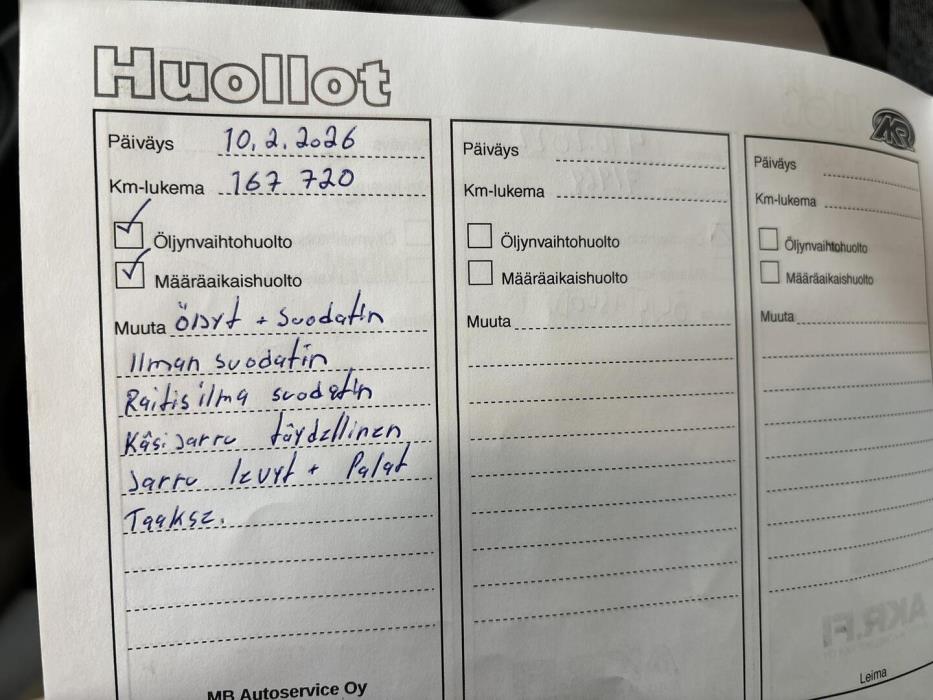 Huollot
Päiväys 10.2.2026
Km-lukema 167 720
Öljynvaihtohuolto
Määräaikaishuolto
Muuta Öljyt + Suodatin
Ilman suodatin
Raitisilma suodatin
Käsijarru täydellinen
Jarru levyt + Palat
Taakse.
MB Autoservice Oy
Päiväys
Km-lukema
Öljynvaihtohuolto
Määräaikaishuolto
Muuta
AKR
Päiväys
Km-lukema
Öljynvaihtohuolto
Määräaikaishuolto
Muuta
AKR.FI
Leima